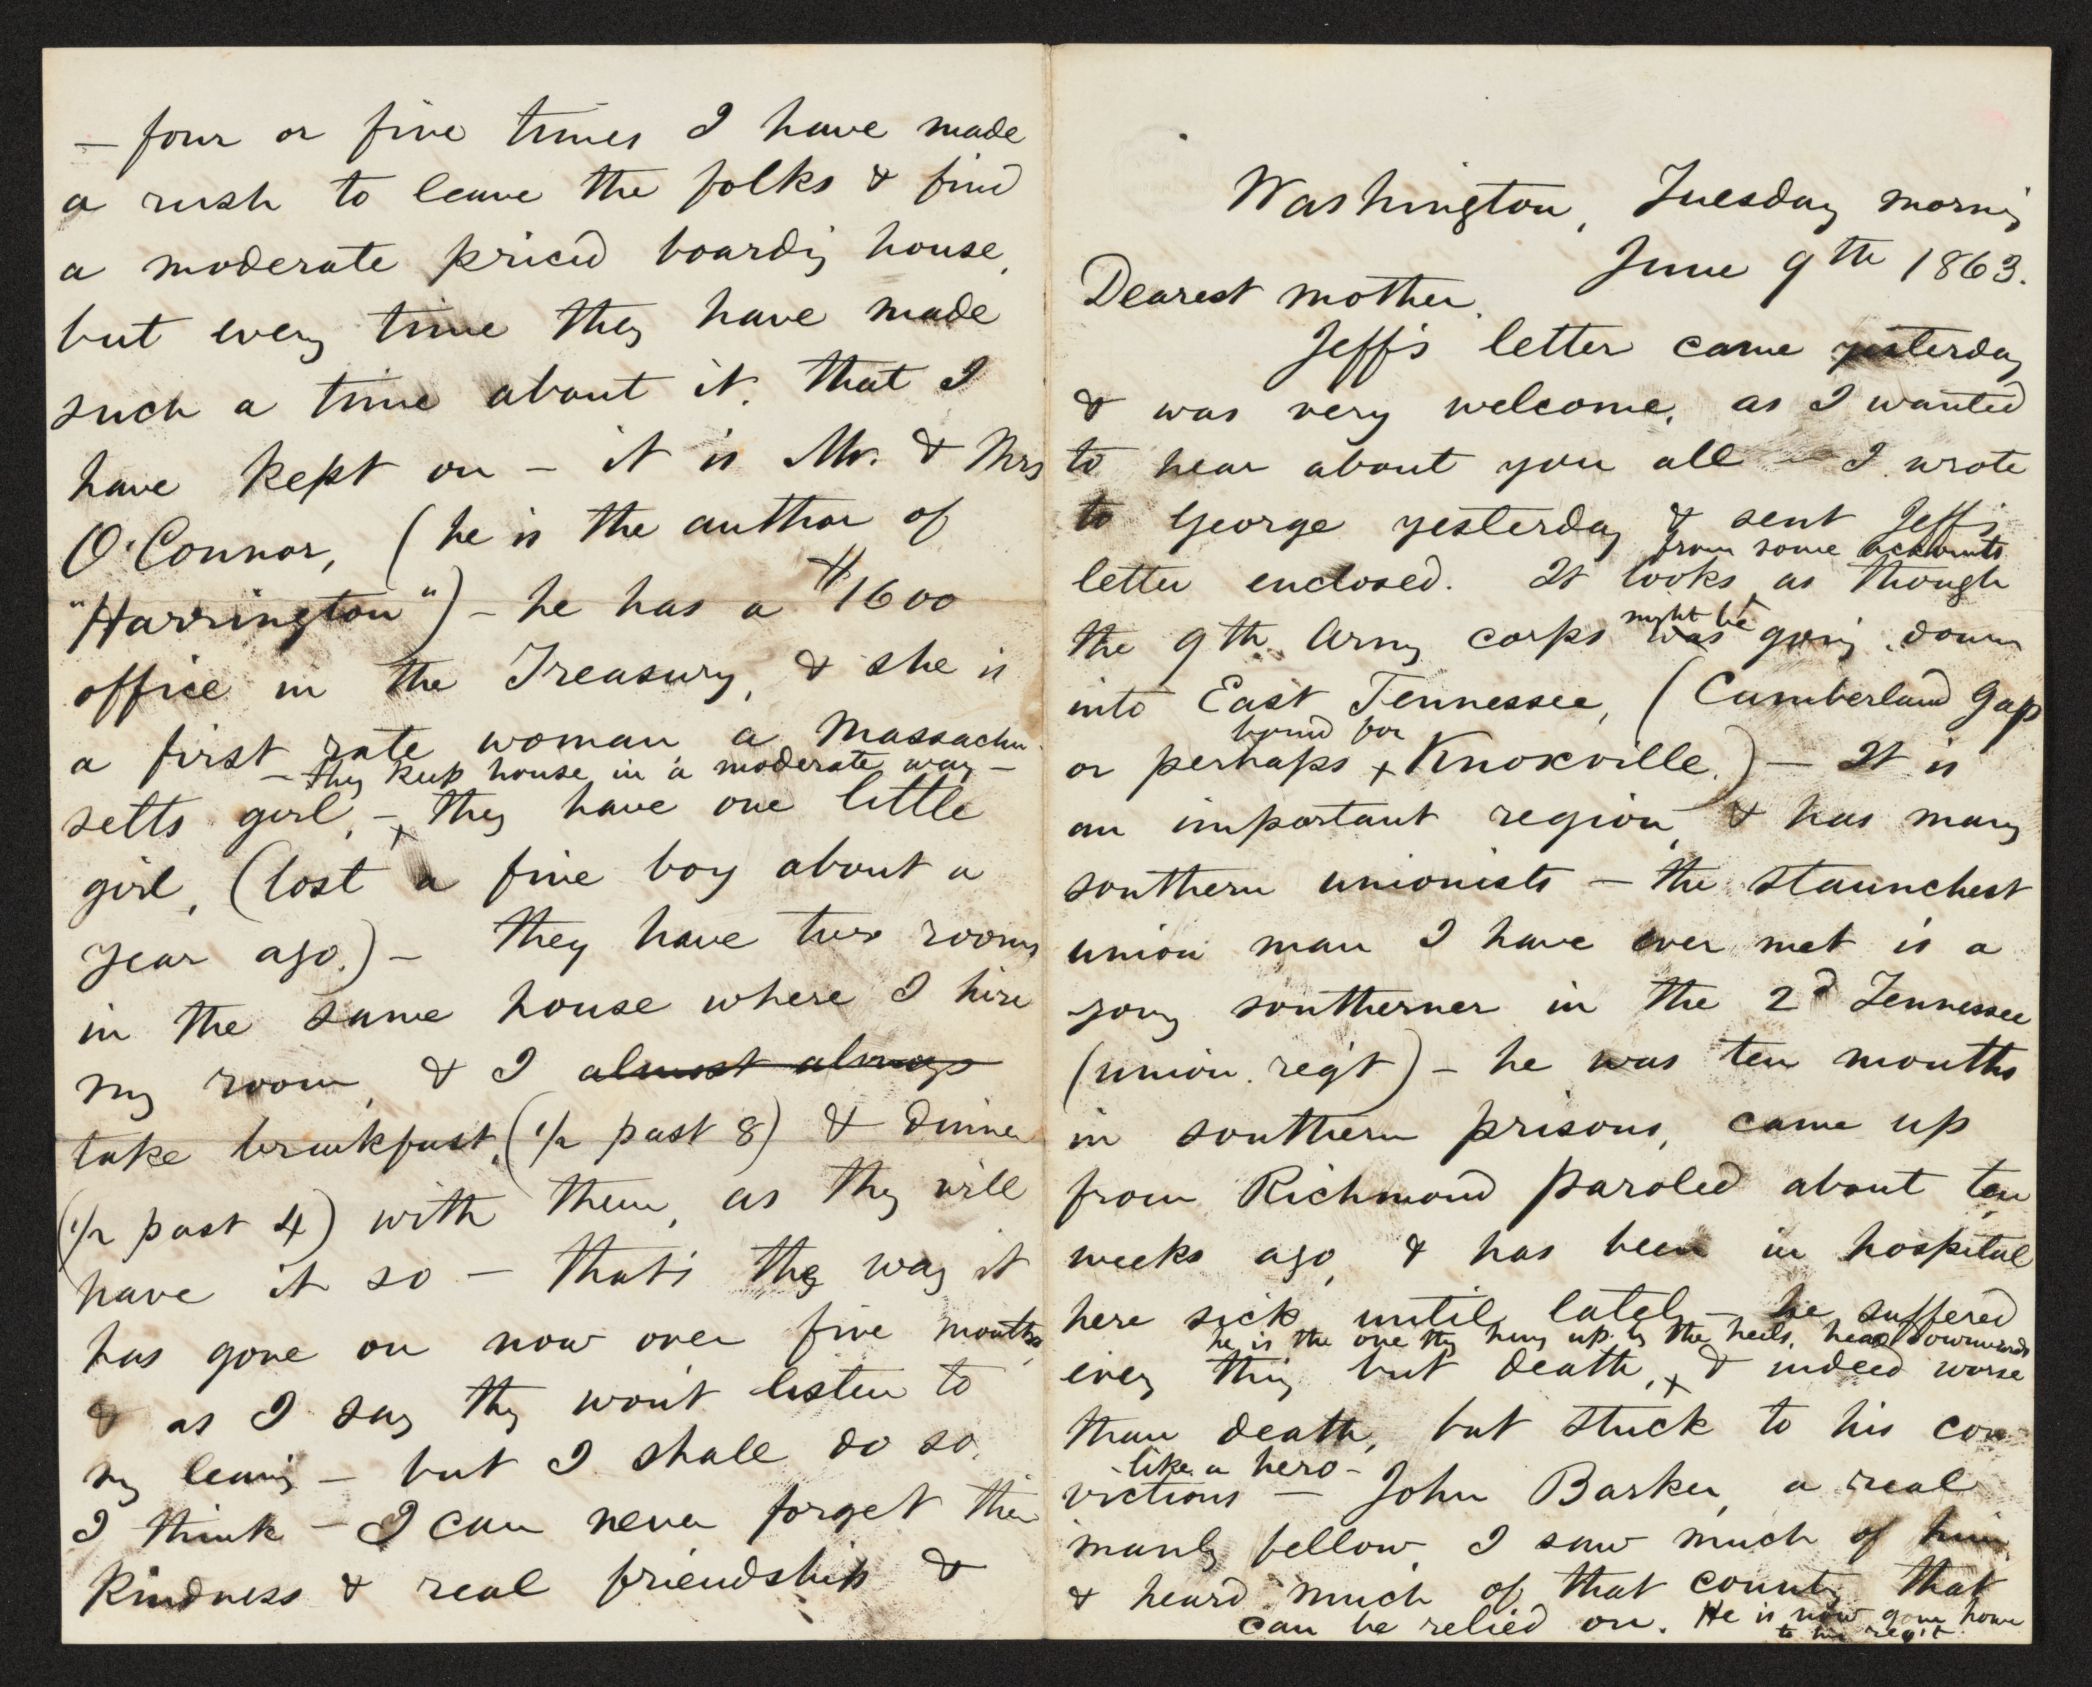 — four or five times I have made
a rush to leave the folks & find
a moderate priced boardig house,
but every time they have made
such a time about it, that I
have kept on — it is Mr. & Mrs
O'Connor, (he is the author of
"Harrington") – he has a $1600
office in the Treasury, & she is
a first rate woman a Massachu-
– they keep house in a moderate way –
setts girl, – they have one little
girl, (lost a fine boy about a
year ago.) – they have two rooms
in the same house where I hire
my room, & I almost always
take breakfast, (1/2 past 8) & dinner
(1/2 past 4) with them, as they will
have it so – that's the way it
has gone on now over five months,
& as I say they won't listen to
my leaving – but I shall do so,
I think – I can never forget their
kindness & real friendship &
Washington, Tuesday morning
June 9th 1863.
Dearest mother,
Jeff's letter came yesterday
& was very welcome, as I wanted
to hear about you all – I wrote
to George yesterday & sent Jeff's
from some accounts
letter enclosed. It looks as though
might be
the 9th Army corps was going down
into East Tennessee, (Cumberland Gap
bound for
or perhaps Knoxville.) – It is
an important region, & has many
southern unionists – the staunchest
union man I have ever met is a
young southerner in the 2d Tennessee
(union reg't) – he was ten months
in southern prisons, came up
from Richmond paroled about ten
weeks ago, & has been in hospital
here sick until lately – he suffered
he is the one they hung up by the heels, head downwards
every thing but death, & indeed worse
than death, but stuck to his con-
– like a hero –
victions – John Barker, a real
manly fellow, I saw much of him,
& heard much of that country that
can be relied on. He is now gone home
to his reg't